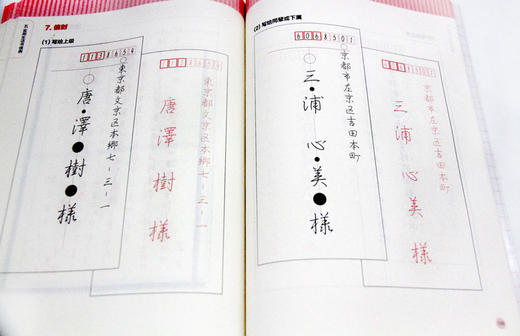 7. 信封
(1) 写给上级
1138654
東京都文京区本郷七-三-一
唐澤樹様
東京都文京区本郷七-三-一
唐澤樹様
(2) 写给同辈或下属
6068501
京都市左京区吉田本町
三浦心美様
京都市左京区吉田本町
三浦心美様